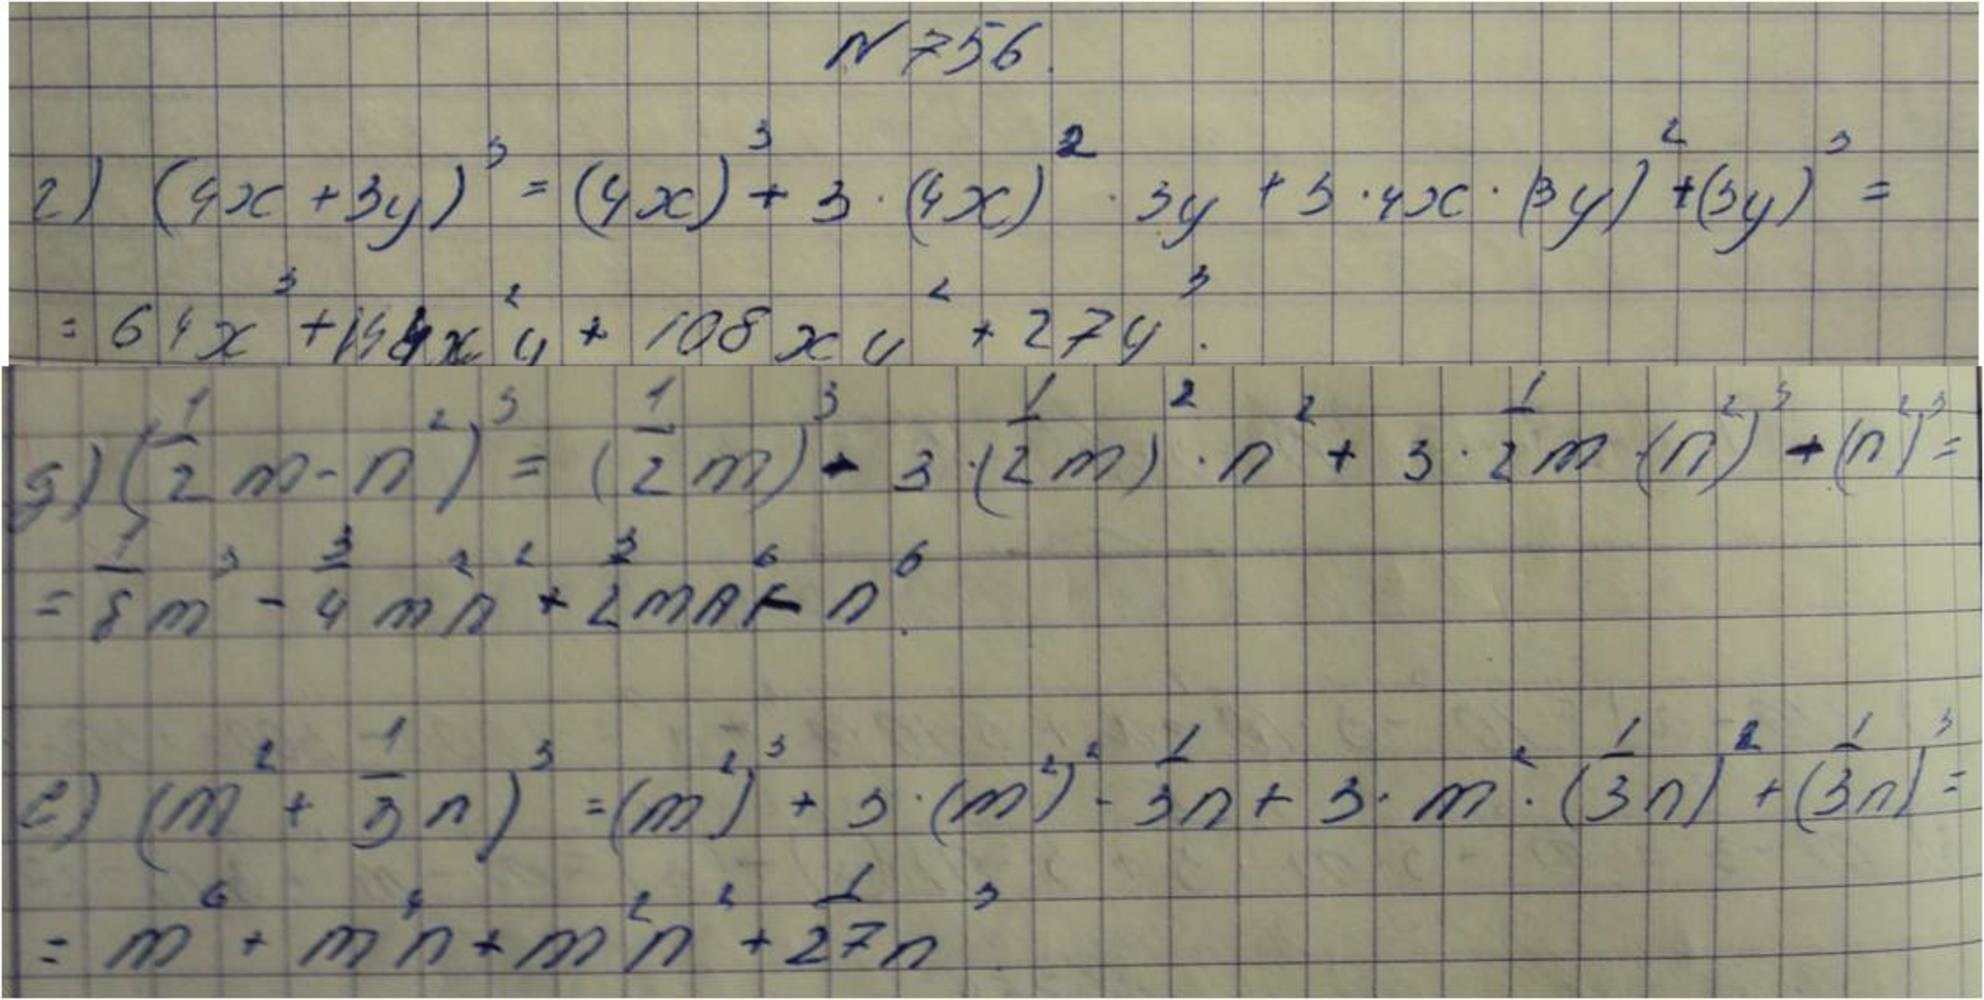 N 756.
г) (4x + 3y)³ = (4x)³ + 3 · (4x)² · 3y + 3 · 4x · (3y)² + (3y)³ =
= 64x³ + 144x²y + 108xy² + 27y³.
д) (1/2 m - n²)³ = (1/2 m)³ - 3 · (1/2 m)² · n² + 3 · 1/2 m · (n²)³ - (n²)³ =
= 1/8 m³ - 3/4 m²n² + 3/2 mn⁶ - n⁶.
е) (m² + 1/3 n)³ = (m²)³ + 3 · (m²)² · 1/3 n + 3 · m² · (1/3 n)² + (1/3 n)³ =
= m⁶ + m⁴n + m²n² + 1/27 n³.